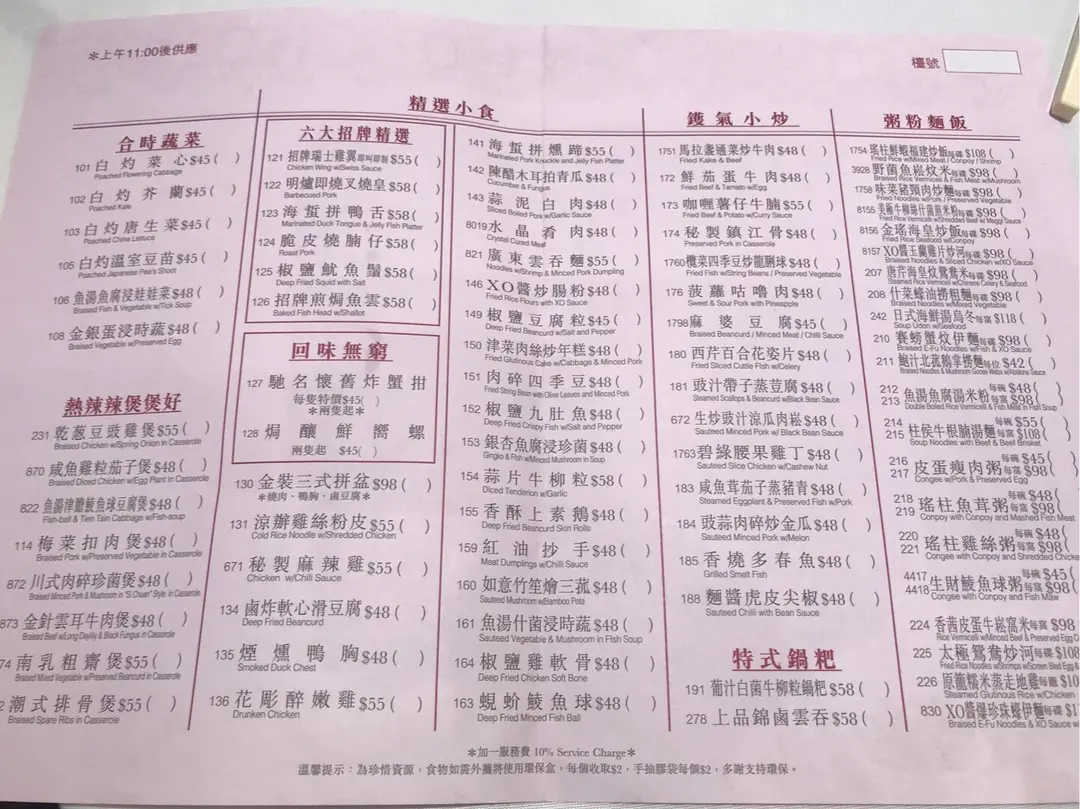 ＊上午11:00後供應
檯號
合時蔬菜
101 白灼菜心$45( )
Poached Flowering Cabbage
102 白灼芥蘭$45( )
Poached Kale
103 白灼唐生菜$45( )
Poached China Lettuce
105 白灼溫室豆苗$45( )
Poached Japanese Pea's Shoot
106 魚湯魚腐浸娃娃菜$48( )
Braised Fish & Vegetable w/Tick Soup
108 金銀蛋浸時蔬$48( )
Braised Vegetable w/Preserved Egg
熱辣辣煲煲好
231 乾蔥豆豉雞煲$55( )
Braised Chicken w/Spring Onion in Casserole
870 咸魚雞粒茄子煲$48( )
Braised Diced Chicken w/Egg Plant in Casserole
822 魚湯津膽鯪魚球豆腐煲$48( )
Fish-ball & Tien Tain Cabbage w/Fish-soup
114 梅菜扣肉煲$48( )
Braised Pork w/Preserved Vegetable in Casserole
872 川式肉碎珍菌煲$48( )
Braised Minced Pork & Mushroom in "Si Chuan" Style in Casserole
873 金針雲耳牛肉煲$48( )
Braised Beef w/Long Daylily & Black Fungus in Casserole
74 南乳粗齋煲$55( )
Braised Mixed Vegetable w/Preserved Beancurd in Casserole
2 潮式排骨煲$55( )
Braised Spare Ribs in Casserole
精選小食
六大招牌精選
121 招牌瑞士雞翼即叫即製$55( )
Chicken Wing w/Swiss Sauce
122 明爐即燒叉燒皇$58( )
Barbecued Pork
123 海蜇拼鴨舌$58( )
Marinated Duck Tongue & Jelly Fish Platter
124 脆皮燒腩仔$58( )
Roast Pork
125 椒鹽魷魚鬚$58( )
Deep Fried Squid with Salt
126 招牌煎焗魚雲$58( )
Baked Fish Head w/Shallot
回味無窮
127 馳名懷舊炸蟹拑
每隻特價$45( )
＊兩隻起＊
128 焗釀鮮嚮螺
兩隻起 $45( )
130 金裝三式拼盆$98( )
＊燒肉、鴨胸、鹵豆腐＊
131 涼辦雞絲粉皮$55( )
Cold Rice Noodle w/Shredded Chicken
671 秘製麻辣雞$55( )
Chicken w/Chili Sauce
134 鹵炸軟心滑豆腐$48( )
Deep Fried Beancurd
135 煙燻鴨胸$48( )
Smoked Duck Chest
136 花彫醉嫩雞$55( )
Drunken Chicken
141 海蜇拼燻蹄$55( )
Marinated Pork Knuckle and Jelly Fish Platter
142 陳醋木耳拍青瓜$48( )
Cucumber & Fungus
143 蒜泥白肉$48( )
Sliced Boiled Pork w/Garlic Sauce
8019 水晶肴肉$48( )
Crystal Cured Meat
821 廣東雲吞麵$55( )
Noodles w/Shrimp & Minced Pork Dumpling
146 XO醬炒腸粉$48( )
Fried Rice Flours with XO Sauce
149 椒鹽豆腐粒$45( )
Deep Fried Beancurd w/Salt and Pepper
150 津菜肉絲炒年糕$48( )
Fried Glutinous Cake w/Cabbage & Minced Pork
151 肉碎四季豆$48( )
Fried String Bean with Olive Leaves and Minced Pork
152 椒鹽九肚魚$48( )
Deep Fried Crispy Fish w/Salt and Pepper
153 銀杏魚腐浸珍菌$48( )
Gingko & Fish w/Minced Mushroom in Soup
154 蒜片牛柳粒$58( )
Diced Tenderion w/Garlic
155 香酥上素鵝$48( )
Deep Fried Beancurd Skin Rolls
159 紅油抄手$48( )
Meat Dumplings w/Chilli Sauce
160 如意竹笙燴三菰$48( )
Sauteed Mushroom w/Bamboo Pota
161 魚湯什菌浸時蔬$48( )
Sauteed Vegetable & Mushroom in Fish Soup
164 椒鹽雞軟骨$48( )
Deep Fried Chicken Soft Bone
163 蜆蚧鯪魚球$48( )
Deep Fried Minced Fish Ball
鑊氣小炒
1751 馬拉盞通菜炒牛肉$48( )
Fried Kake & Beef
172 鮮茄蛋牛肉$48( )
Fried Beef & Tamato w/Egg
173 咖喱薯仔牛腩$55( )
Fried Beef & Potato w/Curry Sauce
174 秘製鎮江骨$48( )
Preserved Pork in Casserole
1760 欖菜四季豆炒龍脷球$48( )
Fried Fish w/String Beans / Preserved Vegetable
176 菠蘿咕嚕肉$48( )
Sweet & Sour Pork with Pineapple
1798 麻婆豆腐$45( )
Braised Beancurd / Minced Meat / Chilli Sauce
180 西芹百合花姿片$48( )
Fried Sliced Cuttle Fish w/Celery
181 豉汁帶子蒸荳腐$48( )
Steamed Scallops & Beancurd w/Black Bean Sauce
672 生炒豉汁涼瓜肉崧$48( )
Sauteed Minced Pork w/ Black Bean Sauce
1763 碧綠腰果雞丁$48( )
Sauteed Slice Chicken w/Cashew Nut
183 咸魚茸茄子蒸豬青$48( )
Steamed Eggplant & Preserved Fish w/Pork
184 豉蒜肉碎炒金瓜$48( )
Sauteed Minced Pork w/Melon
185 香燒多春魚$48( )
Grilled Smelt Fish
188 麵醬虎皮尖椒$48( )
Sauteed Chilli with Bean Sauce
特式鍋粑
191 葡汁白菌牛柳粒鍋粑$58( )
278 上品錦鹵雲吞$58( )
粥粉麵飯
1754 瑤柱鮮蝦福建炒飯每碟$108( )
Fried Rice w/Mixed Meat / Conpoy / Shrimp
3928 野菌魚崧炆米每碟$98( )
Braised Rice Vermicelli & Fish Meat w/Mushroom
1758 味菜豬頸肉炒麵每碟$98( )
Fried Noodles w/Pork / Preserved Vegetable
8155 美極牛柳絲什菌煎米粉每碟$98( )
Braised Rice Vermicelli w/Shredded Beef w/ Maggi Sauce
8156 金瑤海皇炒飯每碟$98( )
Fried Rice Seafood w/Conpoy
8157 XO醬王蘭雞片炒河每碟$98( )
Braised Noodles & Sliced Chicken w/XO Sauce
207 唐芹海皇炆鴛鴦米每碟$98( )
Steamed Rice Vermicelli w/Chinese Celery & Seafood
208 什菜蠔油撈粗麵每碟$98( )
Braised Noodles w/Mixed Vegetable
242 日式海鮮湯烏冬每窩$118( )
Soup Udon w/Seafood
210 賽螃蟹炆伊麵每碟$98( )
Braised E-Fu Noodles w/Fish & XO Sauce
211 鮑汁北菰鵝掌撈麵每位$42( )
Braised Noodles & Mushroom Goose Webs w/Abalone Sauce
212 每碗$48( )
213 魚湯魚腐湯米粉每窩$98( )
Double Boiled Rice Vermicelli & Fish Meat in Fish Soup
214 每碗$55( )
215 柱侯牛根腩湯麵每窩$108( )
Noodles Soup with Beef & Beef Brisket
216 每碗$45( )
217 皮蛋瘦肉粥每窩$98( )
Congee w/Pork & Preserved Egg
218 每碗$48( )
219 瑤柱魚茸粥每窩$98( )
Conpoy with Conpoy and Mashed Fish Meat
220 每碗$48( )
221 瑤柱雞絲粥每窩$98( )
Congee with Conpoy and Shredded Chicke
4417 每碗$45( )
4418 生財鯪魚球粥每窩$98( )
Congee with Conpoy and Fish Maw
224 香茜皮蛋牛崧窩米每窩$98
Rice Vermicelli w/Minced Beef & Preserved Egg
225 太極鴛鴦炒河每碟$108
Fried Rice Noodles w/Shrimps w/Screen Bled Egg
226 原籠糯米蒸走地雞每籠$10
Steamed Glutinous Rice w/Chicken
830 XO醬爆珍珠蠔伊麵每碟$1
Braised E-Fu Noodles & XO Sauce w/
＊加一服務費 10% Service Charge＊
溫馨提示：為珍惜資源，食物如需外賣將使用環保盒，每個收取$2，手抽膠袋每個$2，多謝支持環保。